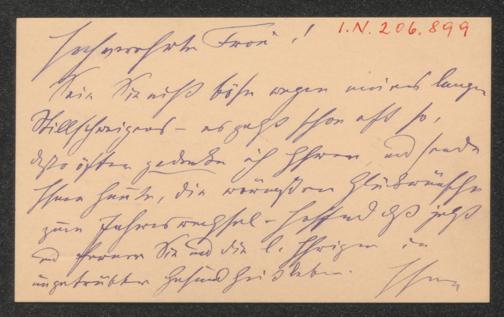 I.N. 206.899
Hochverehrte Frau!
Sein Sie nicht böse wegen meines langen
Stillschweigens – es geht schon oft so,
desto öfter gedenke ich Ihrer, und sende
Ihnen heute, die wärmsten Glückwünsche
zum Jahreswechsel – hoffend daß jetzt
und ferner Sie und die l. Ihrigen in
ungetrübter Gesundheit leben. Ihr